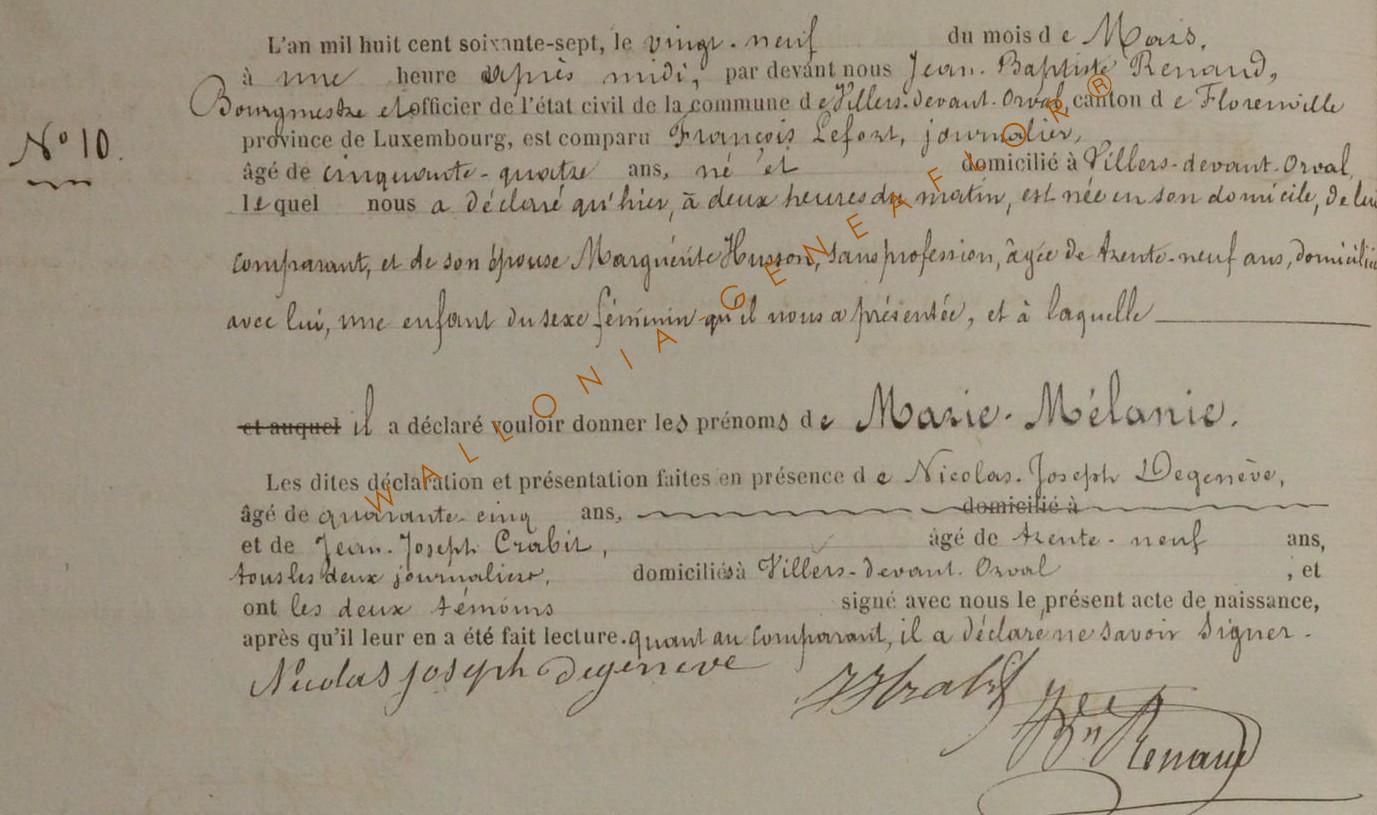 L'an mil huit cent soixante-sept, le vingt-neuf du mois de Mars,
à une heure après midi, par devant nous Jean-Baptiste Renaud,
Bourgmestre et officier de l'état civil de la commune de Villers-devant-Orval, canton de Florenville
N° 10.
province de Luxembourg, est comparu François Lefort, journalier,
âgé de cinquante-quatre ans, né et domicilié à Villers-devant-Orval,
lequel nous a déclaré qu'hier, à deux heures du matin, est née en son domicile, de lui
comparant, et de son épouse Marguérite Husson, sans profession, âgée de trente-neuf ans, domicilié
avec lui, une enfant du sexe féminin qu'il nous a présentée, et à laquelle
et auquel il a déclaré vouloir donner les prénoms de Marie-Mélanie.
Les dites déclaration et présentation faites en présence de Nicolas-Joseph Degenève,
âgé de quarante-cinq ans, domicilié à
et de Jean-Joseph Crabit, âgé de trente-neuf ans,
tous les deux journaliers, domiciliés à Villers-devant-Orval, et
ont les deux témoins signé avec nous le présent acte de naissance,
après qu'il leur en a été fait lecture. quant au comparant, il a déclaré ne savoir signer.
Nicolas joseph degeneve
JJ Crabit
Renaud
WALLONIA GENEAFLOR®